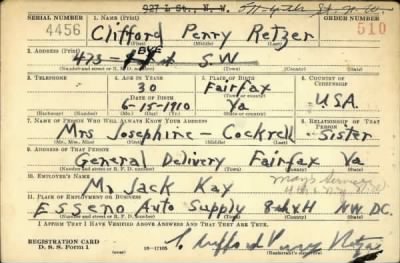 927 I St., N. W.
SERIAL NUMBER 1. NAME (Print) ORDER NUMBER
4456 Clifford Perry Retzer 510
(First) (Middle) (Last)
2. ADDRESS (Print)
473 S.W
(Number and street or R. F. D. number) (Town) (County) (State)
3. TELEPHONE 4. AGE IN YEARS 5. PLACE OF BIRTH 6. COUNTRY OF CITIZENSHIP
30 Fairfax
DATE OF BIRTH
6-15-1910 Va U.S.A.
(Exchange) (Number) (Mo.) (Day) (Yr.) (State or country)
7. NAME OF PERSON WHO WILL ALWAYS KNOW YOUR ADDRESS 8. RELATIONSHIP OF THAT PERSON
Mrs Josephine - Cockrell Sister
(Mr., Mrs., Miss) (First) (Middle) (Last)
9. ADDRESS OF THAT PERSON
General Delivery Fairfax Va
(Number and street or R. F. D. number) (Town) (County) (State)
10. EMPLOYER'S NAME
Mr Jack Kay
11. PLACE OF EMPLOYMENT OR BUSINESS
Esseno Auto Supply 8th & H NW DC.
(Number and street or R. F. D. number) (Town) (County) (State)
I AFFIRM THAT I HAVE VERIFIED ABOVE ANSWERS AND THAT THEY ARE TRUE.
REGISTRATION CARD
D. S. S. Form 1 16-17105 Clifford Perry Retzer